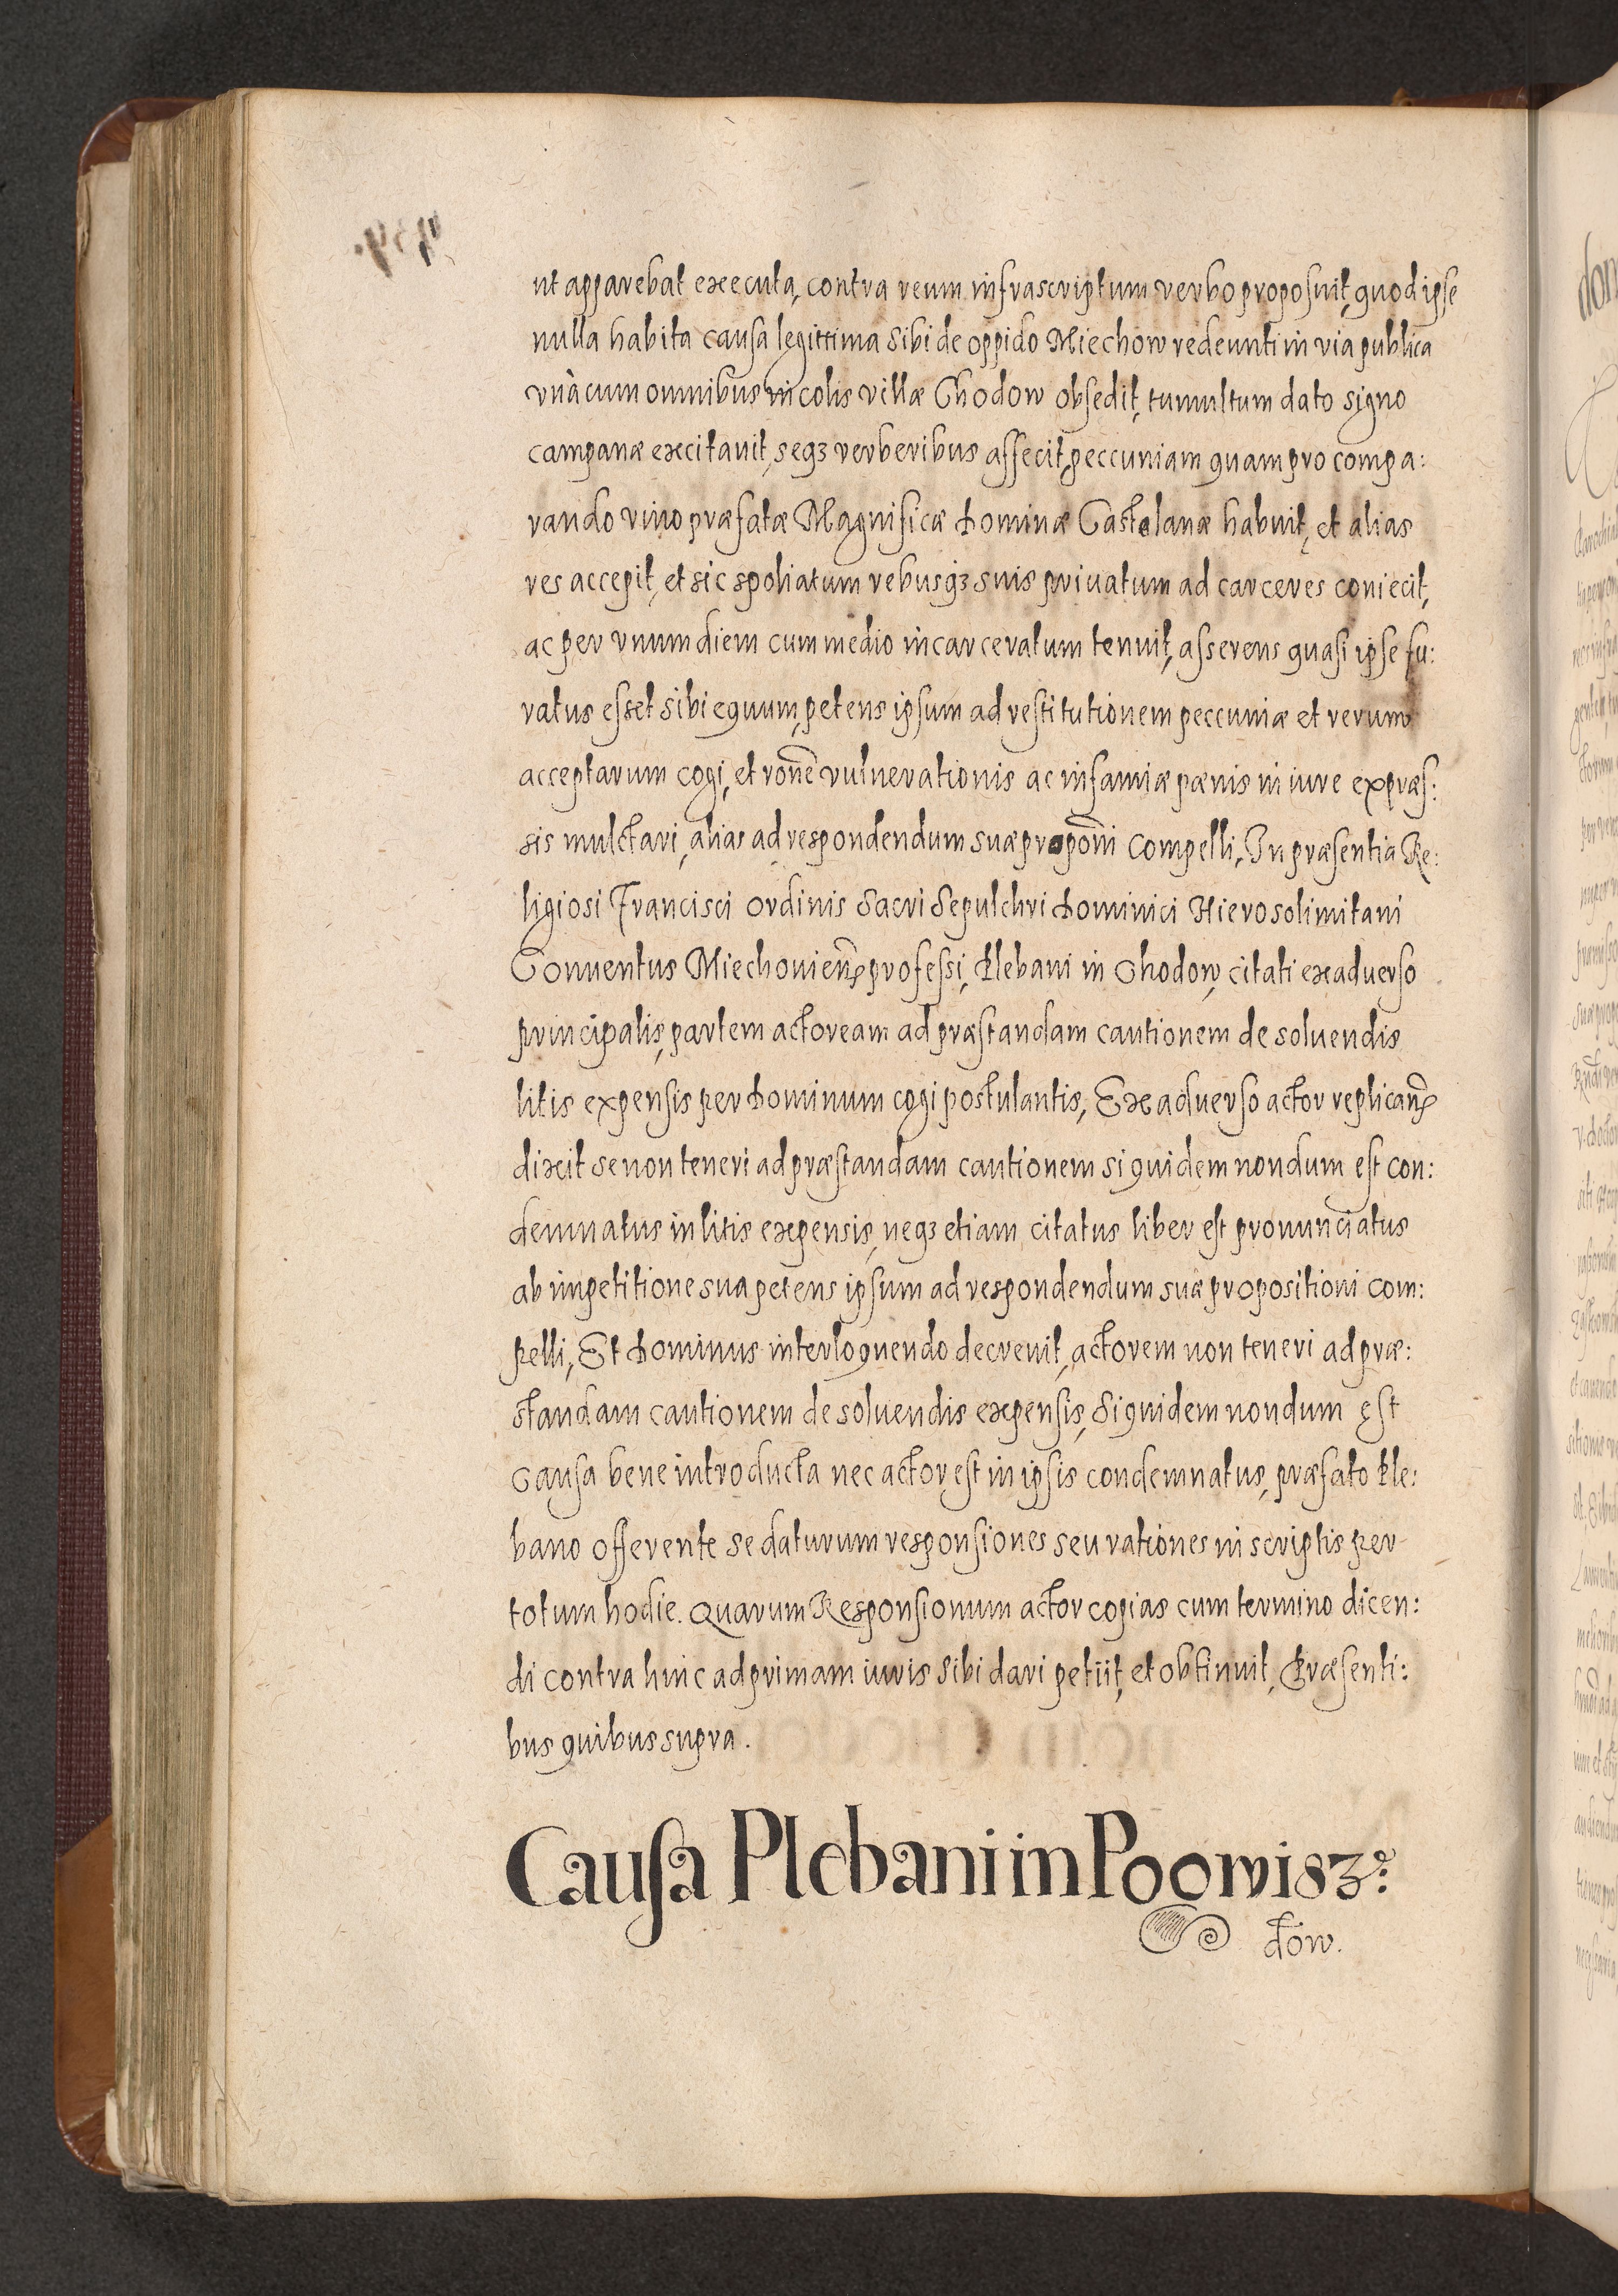 ut apparebat executa, contra reum infrascriptum verbo proposuit, quod ipse
nulla habita causa legittima sibi de oppido Miechow redeunti in via publica
vnà cum omnibus incolis villæ Chodow obsedit, tumultum dato signo
campanæ excitauit, seqȝ verberibus affecit, peccuniam quam pro compa:
rando vino præfatæ Magnificæ Dominæ Castelanæ habuit, et alias
res accepit, et sic spoliatum rebusqȝ suis priuatum ad carceres coniecit,
ac per vnum diem cum medio incarceratum tenuit, asserens quasi ipse fu:
ratus esset sibi equum, petens ipsum ad restitutionem peccuniæ et rerum
acceptarum cogi, et rōne vulnerationis ac infamiæ pænis in iure expræs:
sis mulctari, alias ad respondendum suæ propōni compelli, In præsentia Re:
ligiosi Francisci ordinis Sacri Sepulchri Dominici Hierosolimitani
Conuentus Miechouieñ professi, Plebani in Chodow, citati ex aduerso
principalis, partem actoream ad præstandam cautionem de soluendis
litis expensis per Dominum cogi postulantis, Ex aduerso actor replicañ
dixit se non teneri ad præstandam cautionem siquidem nondum est con:
demnatus in litis expensis, neqȝ etiam citatus liber est pronunciatus
ab impetitione sua petens ipsum ad respondendum suæ propositioni com:
pelli, Et Dominus interloquendo decreuit, actorem non teneri ad præ:
standam cautionem de soluendis expensis, Siquidem nondum est
causa bene introducta nec actor est in ipsis condemnatus, præfato Ple:
bano offerente se daturum responsiones seu rationes in scriptis per
totum hodie. Quarum Responsionum actor copias cum termino dicen:
di contra hinc ad primam iuris sibi dari petiit, et obtinuit, Præsenti:
bus quibus supra.
Causa Plebani in Poowisz:
dow.